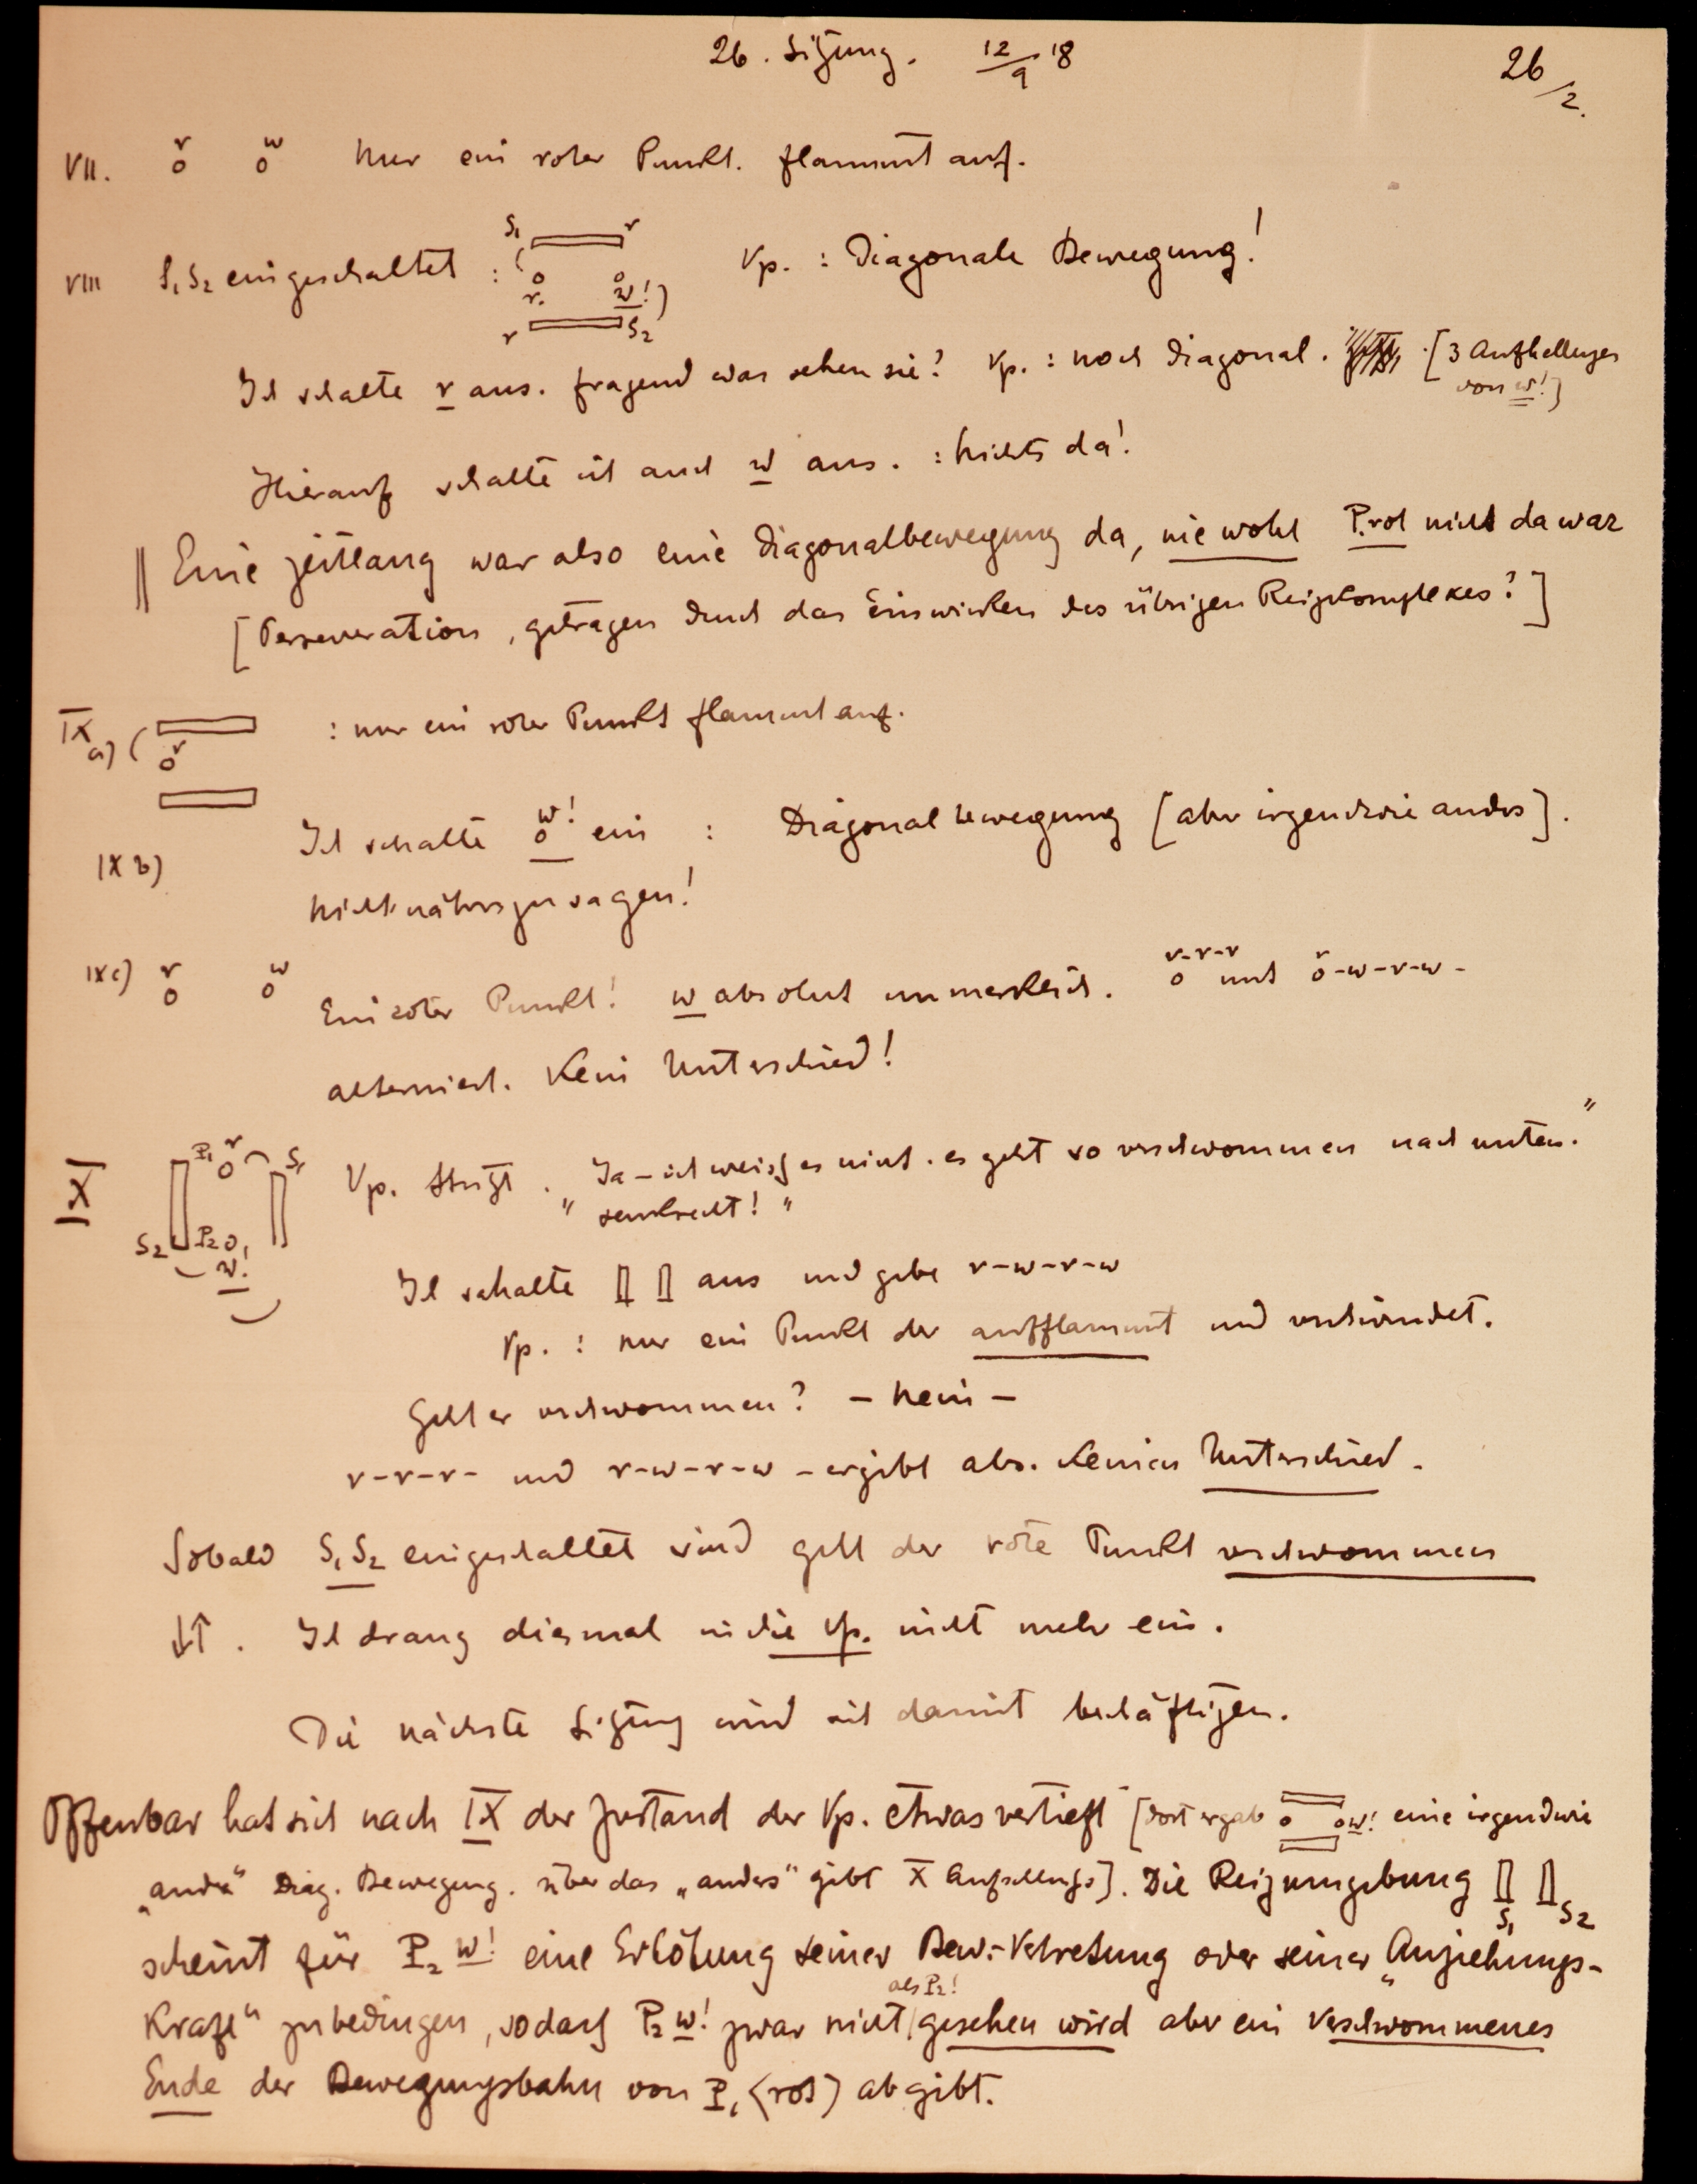 26. Sitzung. 12/9 18
26/2.
VII. r o w o Nur ein roter Punkt. flammt auf.
VIII S₁ S₂ eingeschaltet : S₁ r Vp. : Diagonale Bewegung!
( o o
r. w! )
r S₂
Ich schalte r aus. fragend was sehen sie? Vp. : noch diagonal. [3 Aufhellungen
von w!]
Hierauf schalte ich auch w aus. : Nichts da!
|| Eine Zeitlang war also eine Diagonalbewegung da, wiewohl P.rot nicht da war
[Perseveration, getragen durch das Einwirken des übrigen Reizkomplexes?]
IX a) ( r o : nur ein roter Punkt flammt auf.
IX b) Ich schalte w! o ein : Diagonalbewegung [aber irgendwie anders].
Nicht näher zu sagen!
IX c) r o w o Ein roter Punkt! w absolut unmerklich. r-r-r o und r o-w-r-w-
alterniert. Kein Unterschied!
X P₁ r o S₁ Vp. stutzt. „Ja – ich weiss es nicht. es geht so verschwommen nach unten."
S₂ P₂ o w! „senkrecht!"
Ich schalte aus und gebe r-w-r-w
Vp. : nur ein Punkt der aufflammt und verschwindet.
Geht er verschwommen? – Nein –
r-r-r- und r-w-r-w – ergibt abs. keinen Unterschied.
Sobald S₁ S₂ eingeschaltet sind geht der rote Punkt verschwommen
↓↑. Ich drang diesmal in die Vp. nicht mehr ein.
Die nächste Sitzung wird sich damit beschäftigen.
Offenbar hat sich nach IX der Zustand der Vp. etwas vertieft [dort ergab o o w! eine irgendwie
„andre" Diag. Bewegung. über das „anders" gibt X Aufschluss]. Die Reizumgebung S₁ S₂
scheint für P₂ w! eine Erhöhung seiner Bew.-Vertretung oder seiner „Anziehungs-
kraft" zu bedingen, sodass P₂ w! zwar nicht als P₂! gesehen wird aber ein verschwommenes
Ende der Bewegungsbahn von P₁ (rot) abgibt.